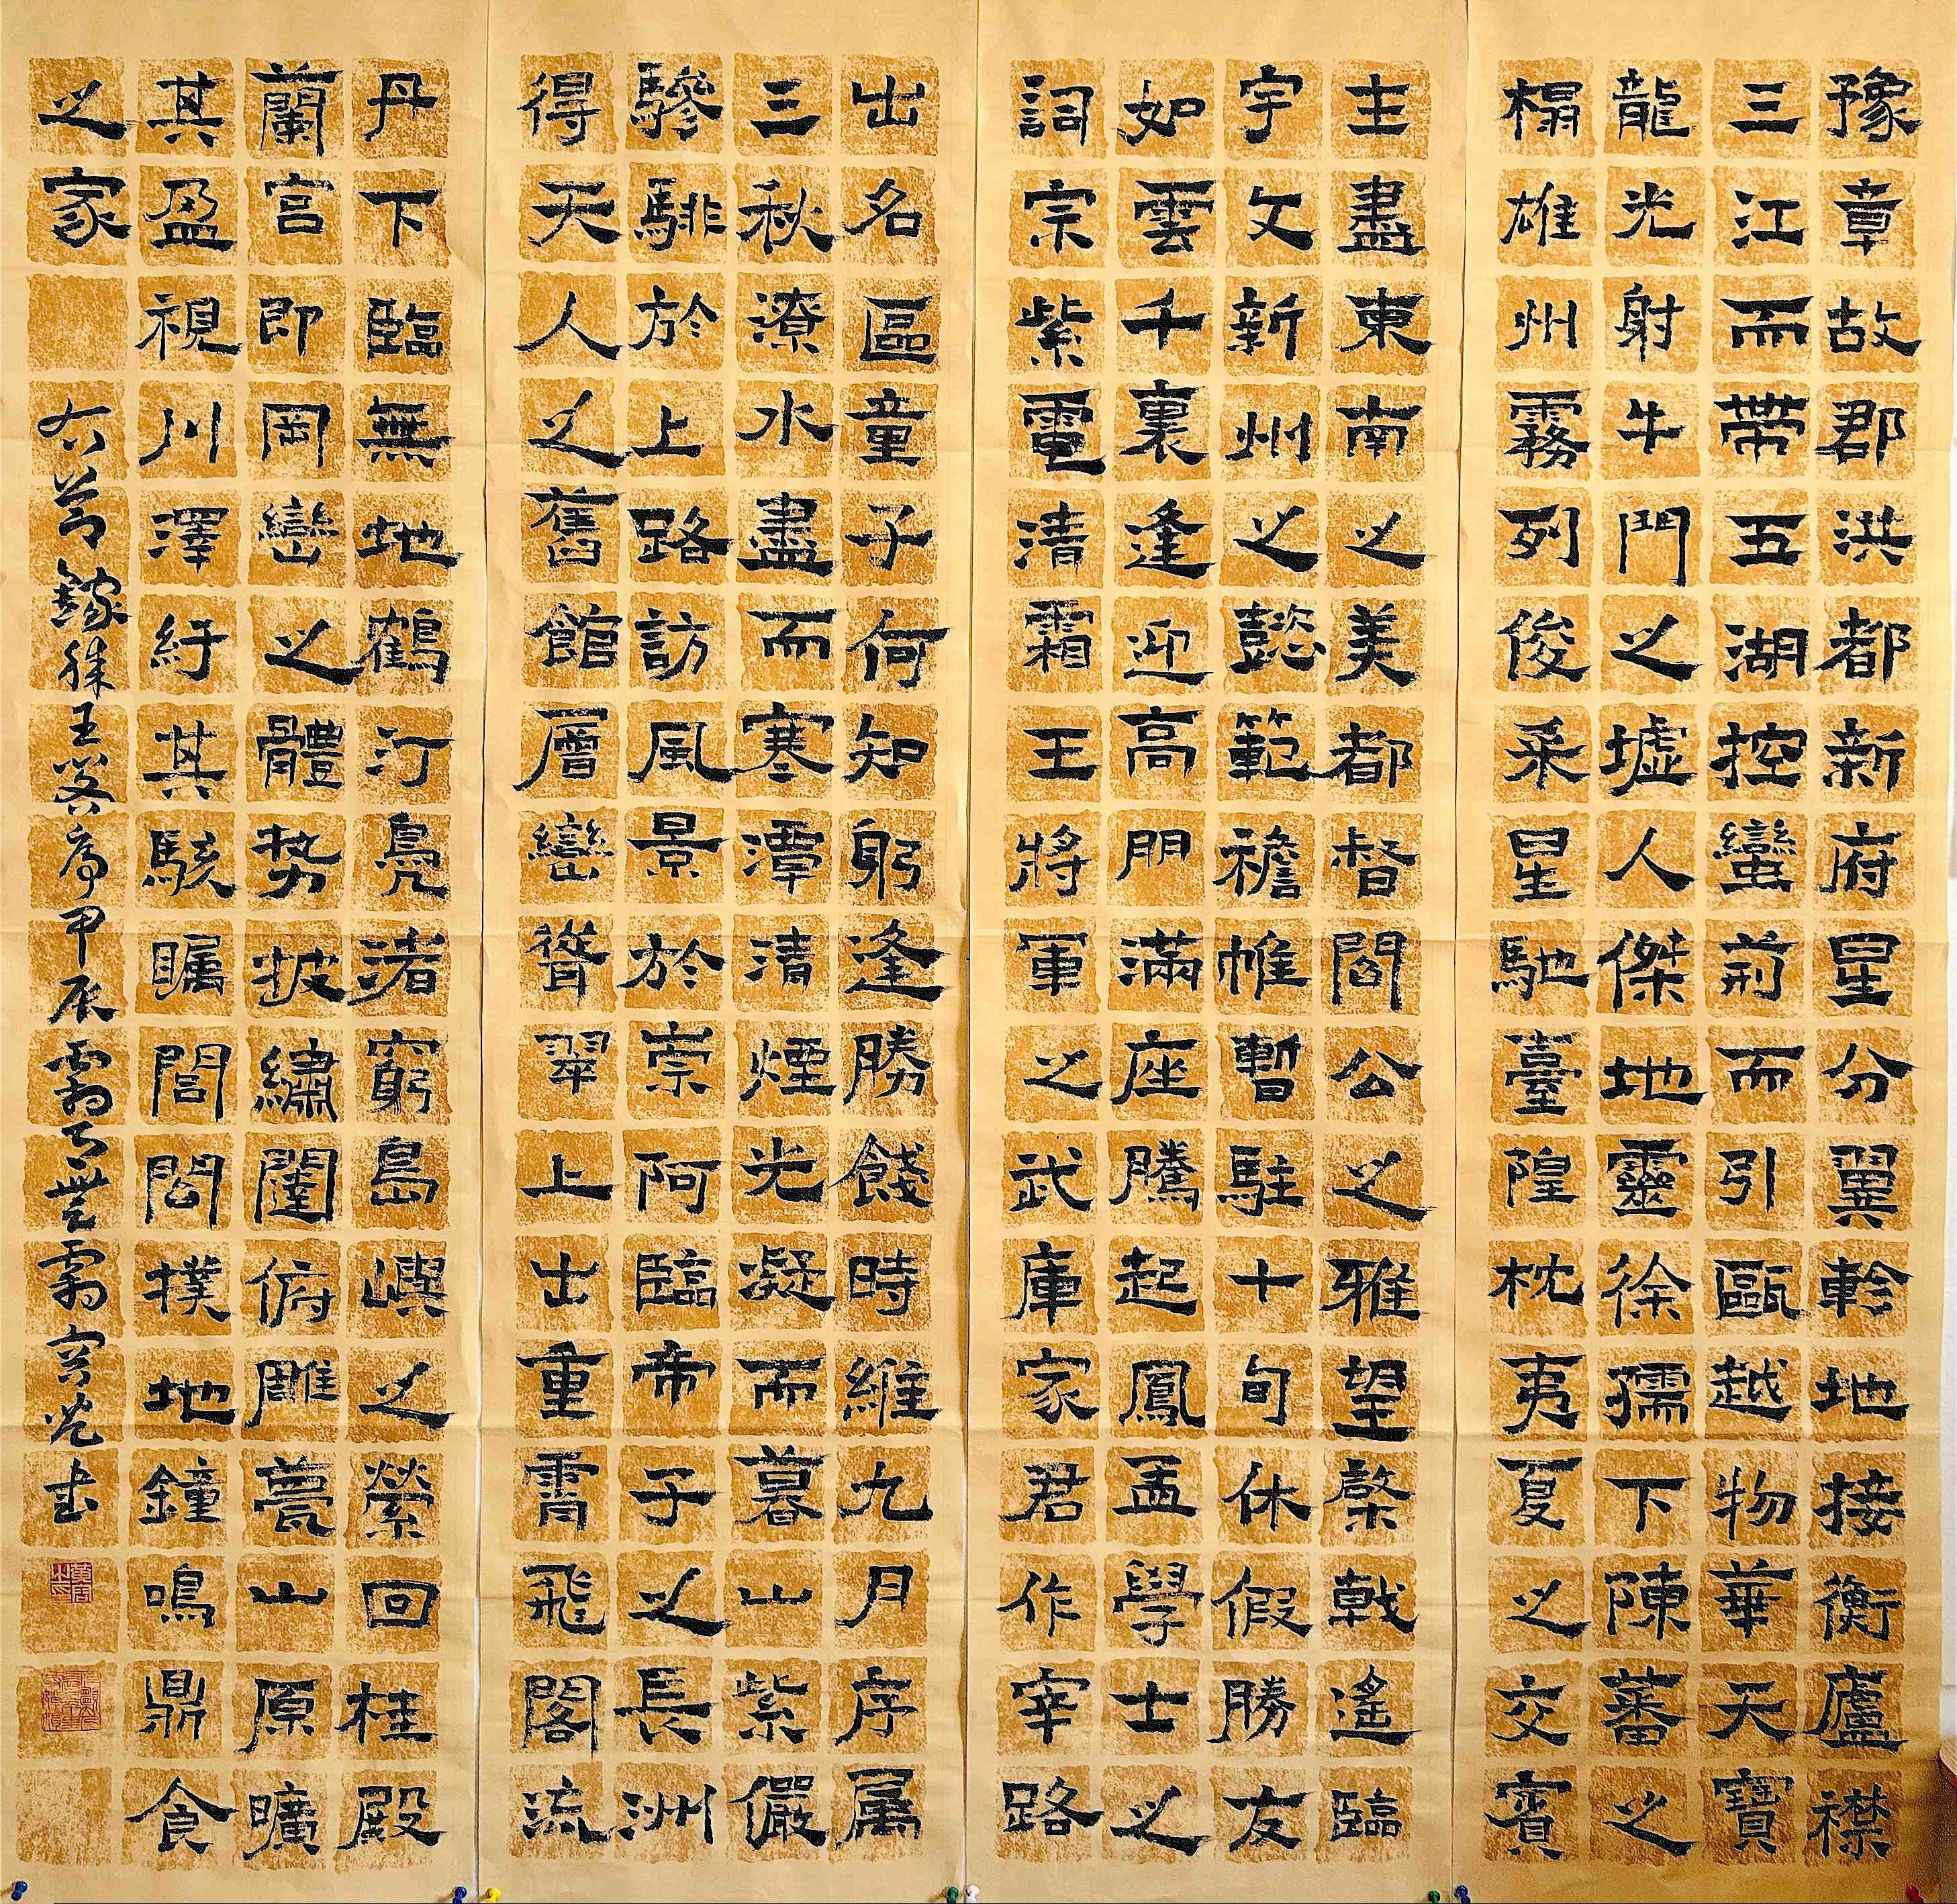 豫章故郡洪都新府星分翼軫地接衡廬襟
三江而帶五湖控蠻荊而引甌越物華天寶
龍光射牛鬥之墟人傑地靈徐孺下陳蕃之
榻雄州霧列俊采星馳臺隍枕夷夏之交賓
主盡東南之美都督閻公之雅望棨戟遙臨
宇文新州之懿範襜帷暫駐十旬休假勝友
如雲千裏逢迎高朋滿座騰鳳起孟學士之
詞宗紫電清霜王將軍之武庫家君作宰路
出名區童子何知躬逢勝餞時維九月序属
三秋潦水盡而寒潭清煙光凝而暮山紫儼
驂騑於上路訪風景於崇阿臨帝子之長洲
得天人之舊館層巒聳翠上出重霄飛閣流
丹下臨無地鶴汀鳧渚窮島嶼之縈回桂殿
蘭宮即岡巒之體勢披繡闥俯雕甍山原曠
其盈視川澤紆其駭矚閭閻撲地鐘鳴鼎食
之家
右節錄滕王閣序甲辰書